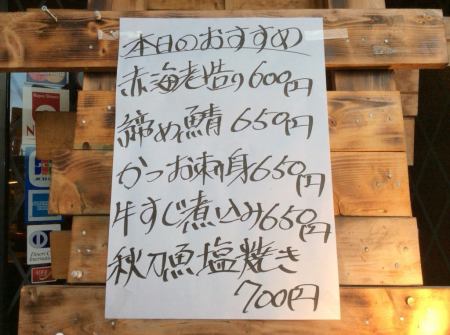 本日のおすすめ
赤海老造り600円
締め鯖650円
かつお刺身650円
牛すじ煮込み650円
秋刀魚塩焼き
700円
Diners Club
International